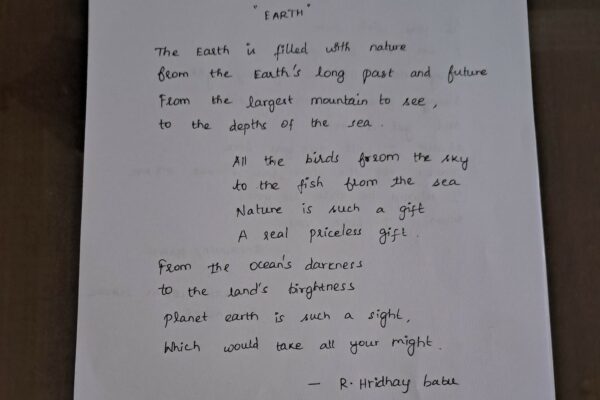 "EARTH"
The Earth is filled with nature
from the Earth's long past and future
From the largest mountain to see,
to the depths of the sea.
All the birds from the sky
to the fish from the sea
Nature is such a gift
A real priceless gift.
From the ocean's darkness
to the land's birghtness
planet earth is such a sight,
Which would take all your might.
— R. Hridhay babu